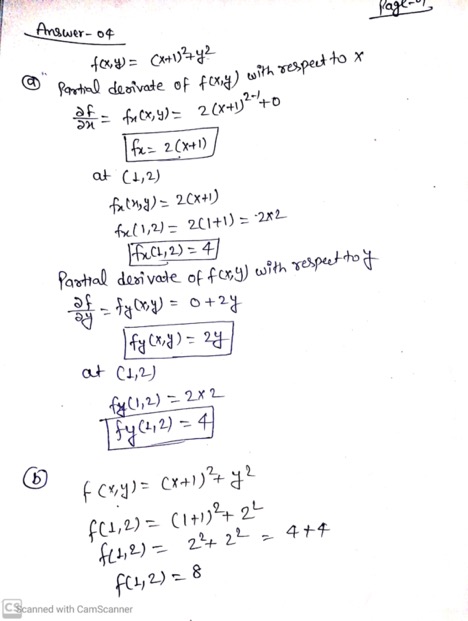 Page-07
Answer-04
f(x,y) = (x+1)²+y²
(a) Partial derivate of f(x,y) with respect to x
∂f/∂x = fx(x,y) = 2(x+1)²⁻¹+0
fx = 2(x+1)
at (1,2)
fx(x,y) = 2(x+1)
fx(1,2) = 2(1+1) = 2×2
fx(1,2) = 4
Partial derivate of f(x,y) with respect to y
∂f/∂y = fy(x,y) = 0+2y
fy(x,y) = 2y
at (1,2)
fy(1,2) = 2×2
fy(1,2) = 4
(b)
f(x,y) = (x+1)²+y²
f(1,2) = (1+1)²+2²
f(1,2) = 2²+2² = 4+4
f(1,2) = 8
CS Scanned with CamScanner